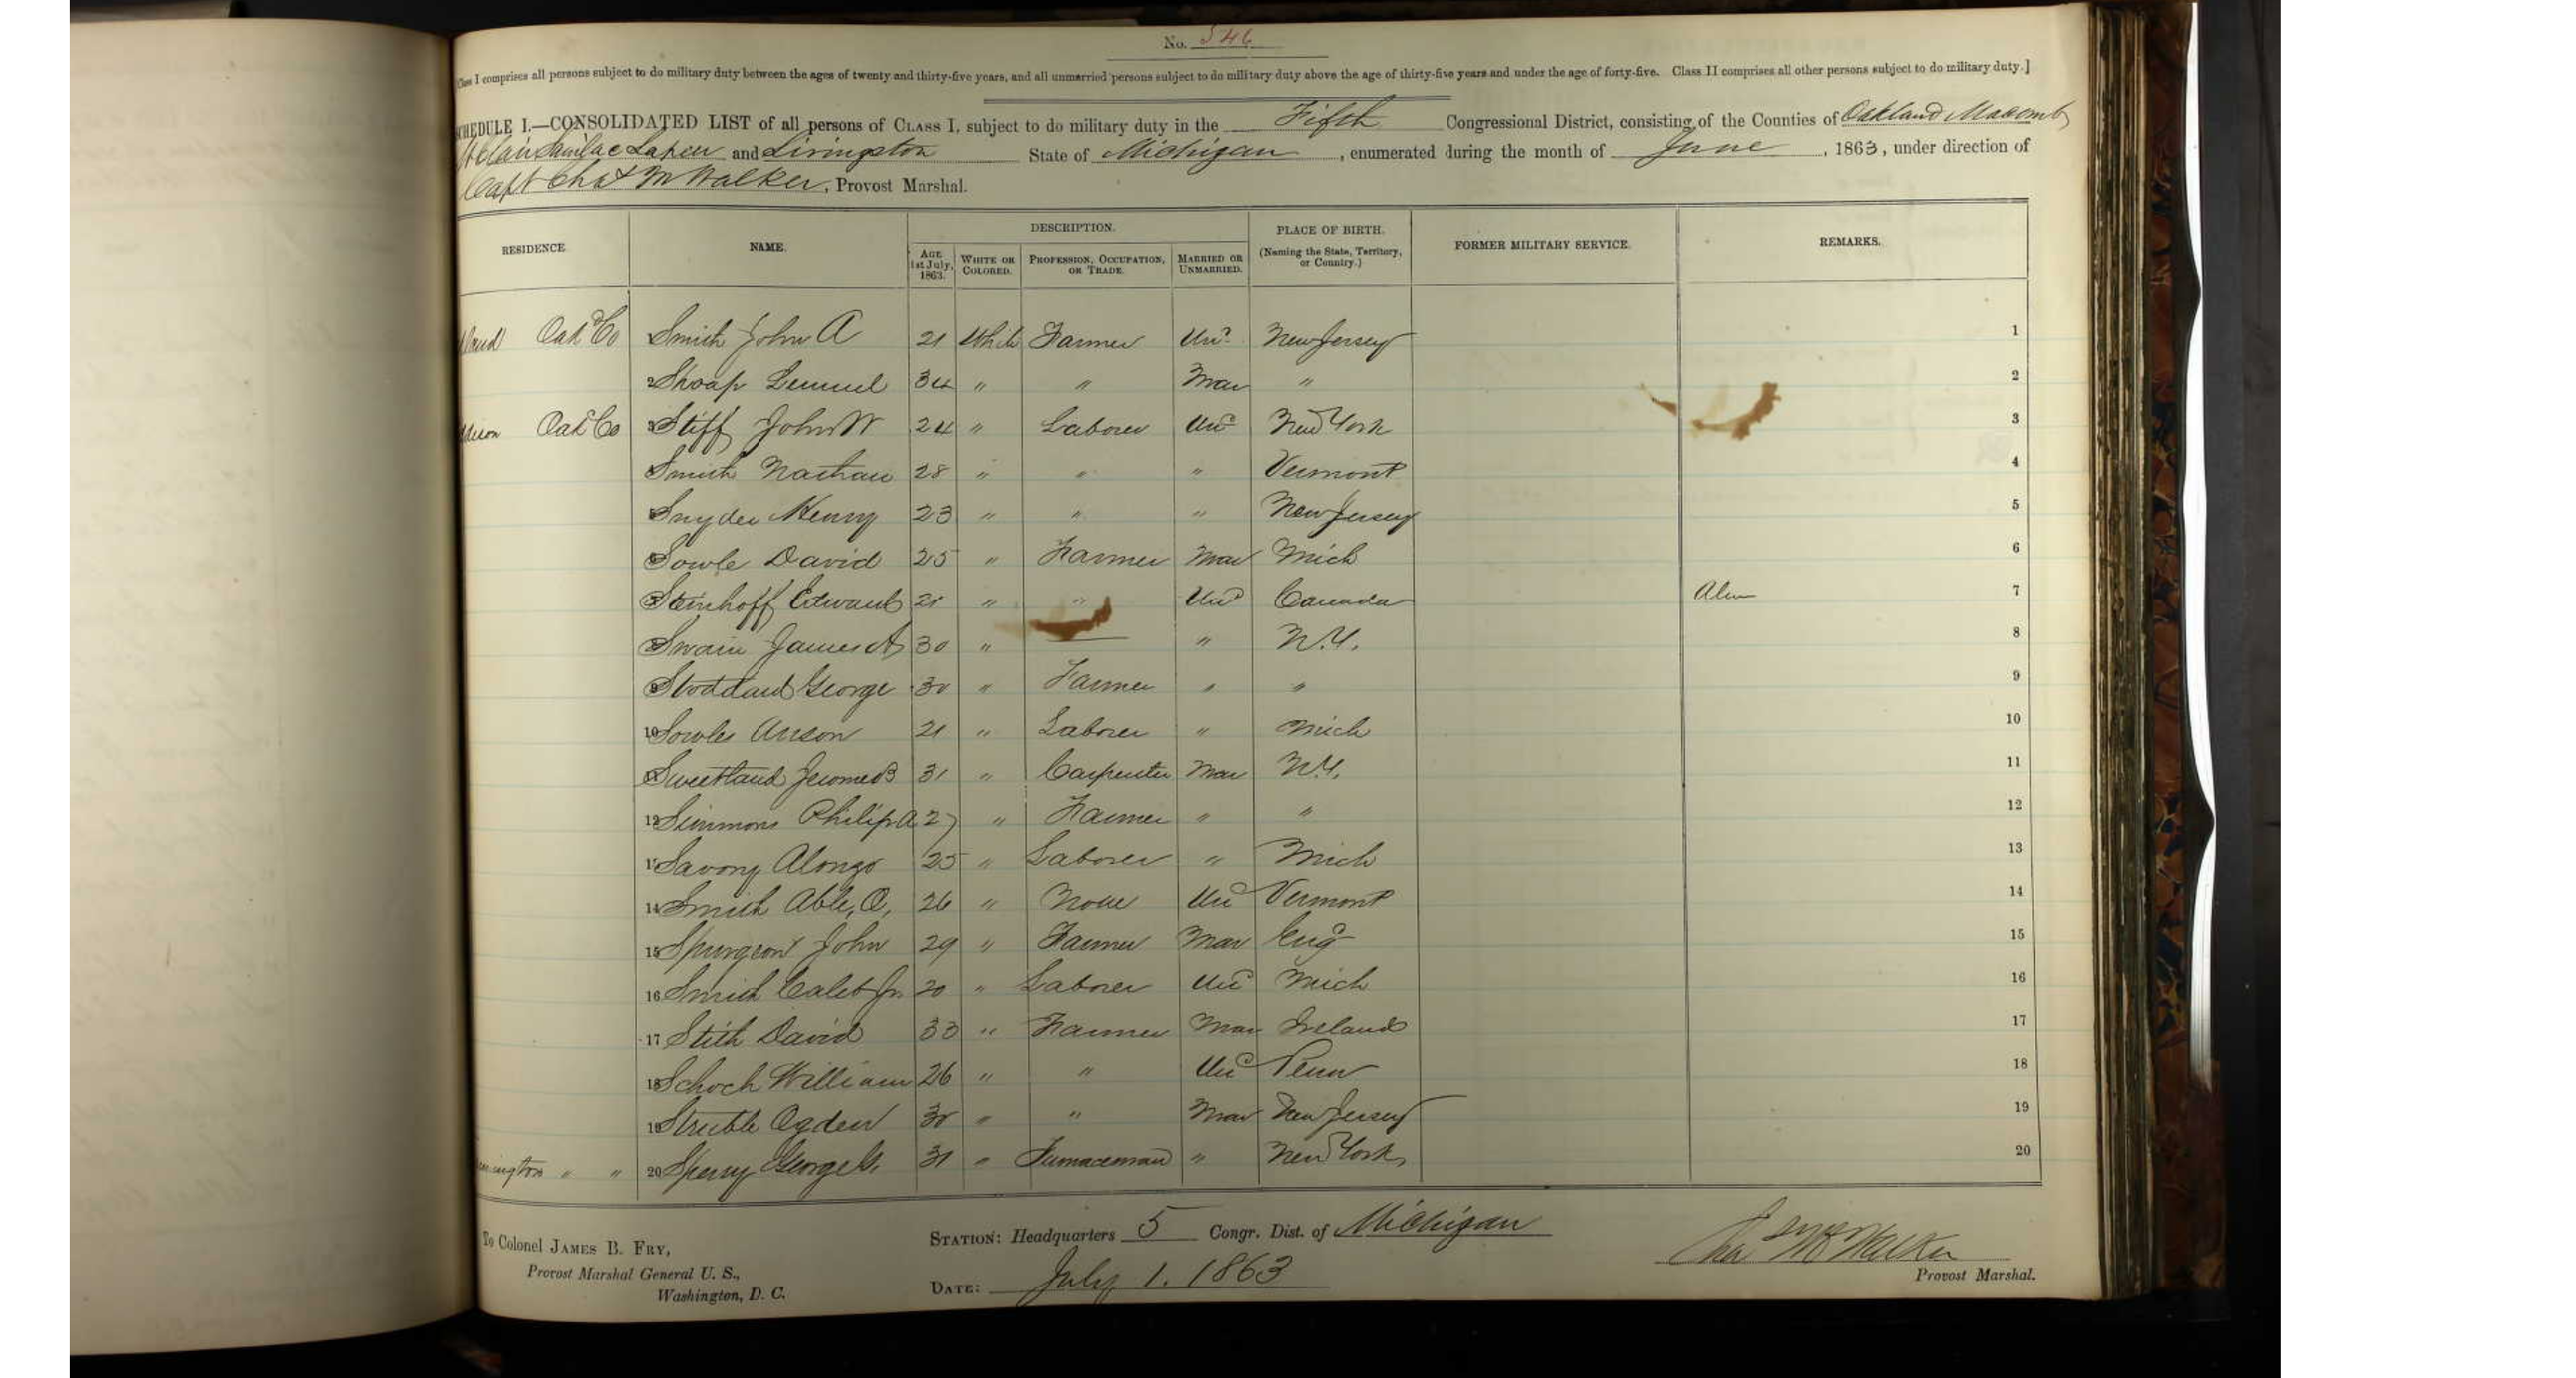 No. 546
Class I comprises all persons subject to do military duty between the ages of twenty and thirty-five years, and all unmarried persons subject to do military duty above the age of thirty-five years and under the age of forty-five. Class II comprises all other persons subject to do military duty.]
SCHEDULE I.—CONSOLIDATED LIST of all persons of CLASS I, subject to do military duty in the Fifth Congressional District, consisting of the Counties of Oakland Macomb
St Clair Sanilac Lapeer and Livingston State of Michigan, enumerated during the month of June, 1863, under direction of
Capt Chas M Walker, Provost Marshal.
RESIDENCE. NAME. DESCRIPTION. PLACE OF BIRTH. (Naming the State, Territory, or Country.) FORMER MILITARY SERVICE. REMARKS.
AGE 1st July, 1863. WHITE OR COLORED. PROFESSION, OCCUPATION, OR TRADE. MARRIED OR UNMARRIED.
Oakd Co Smith John A 21 White Farmer Und New Jersey 1
2 Shoap Lemuel 34 " " Mar " 2
Oakd Co 3 Stiff John W 24 " Laborer Und New York 3
Smith Nathan 28 " " " Vermont 4
Snyder Henry 23 " " " New Jersey 5
6 Sowle David 25 " Farmer Mar Mich 6
Steinhoff Edward 21 " " Und Canada Alien 7
Swain James A 30 " — " N.Y. 8
9 Stoddard George 30 " Farmer " " 9
10 Sowles Anson 21 " Laborer " Mich 10
11 Sweetland Jerome B 31 " Carpenter Mar N.Y. 11
12 Simmons Philip A 27 " Farmer " " 12
Savory Alonzo 25 " Laborer " Mich 13
14 Smith Able, O, 26 " None Und Vermont 14
15 Spurgeon John 29 " Farmer Mar Engd 15
16 Smith Caleb Jr 20 " Laborer Und Mich 16
17 Stith David 33 " Farmer Mar Ireland 17
18 Schoch William 26 " " Und Penn 18
19 Struble Ogden 30 " " Mar New Jersey 19
" " 20 Sperry George G. 31 " Furnaceman " New York, 20
To Colonel JAMES B. FRY,
Provost Marshal General U. S.,
Washington, D. C.
STATION: Headquarters 5 Congr. Dist. of Michigan
DATE: July 1. 1863
Chas M Walker
Provost Marshal.